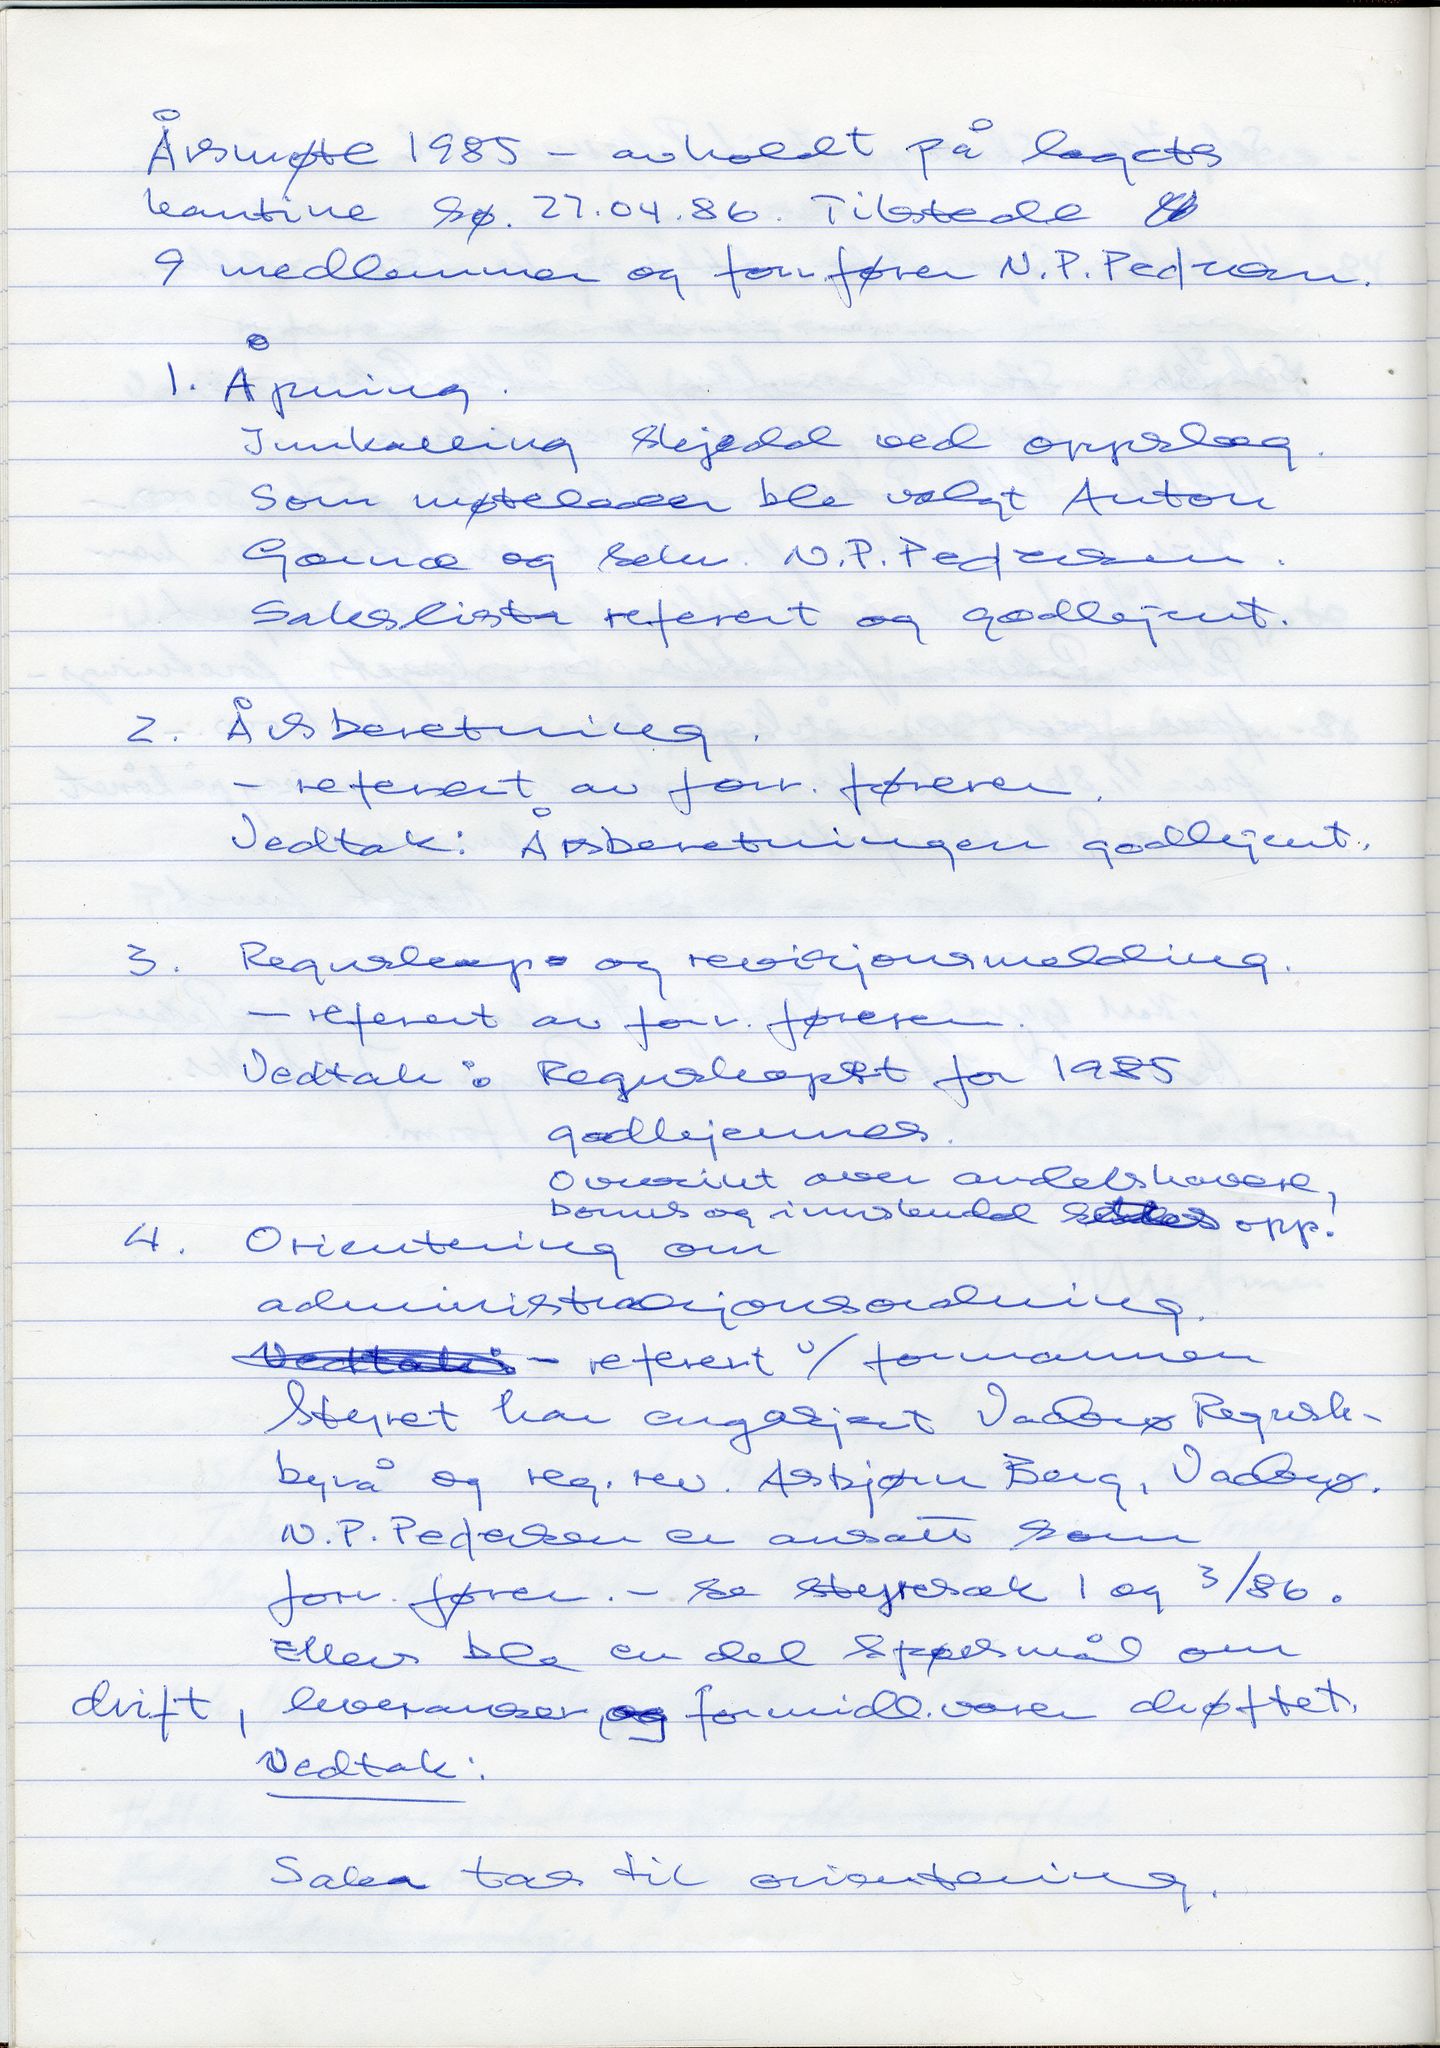 Årsmøte 1985 – avholdt på lagets
kantine sø. 27.04.86. Tilstede
9 medlemmer og forr.fører N.P. Pedersen.
1. Åpning.
Innkalling skjedd ved oppslag.
Som møteleder ble valgt Anton
og sekr. N.P. Pedersen.
Sakslista referert og godkjent.
2. Årsberetning.
– referert av forr. føreren.
Vedtak: Årsberetningen godkjent.
3. Regnskap- og revisjonsmelding.
– referert av forr. føreren.
Vedtak: Regnskapet for 1985
godkjennes.
Oversikt over andelshavere,
bonus og innskudd settes opp!
4. Orientering om
administrasjonsordning.
Vedtak: – referert v/ formannen
Styret har engasjert Vadsø Regnsk-
byrå og reg. rev. Asbjørn Berg, Vadsø.
N.P. Pedersen er ansatt som
forr. fører. – Se styresak 1 og 3/86.
Ellers ble en del spørsmål om
drift, leveranser, og formidl. varer drøftet.
Vedtak:
Saken tas til orientering.